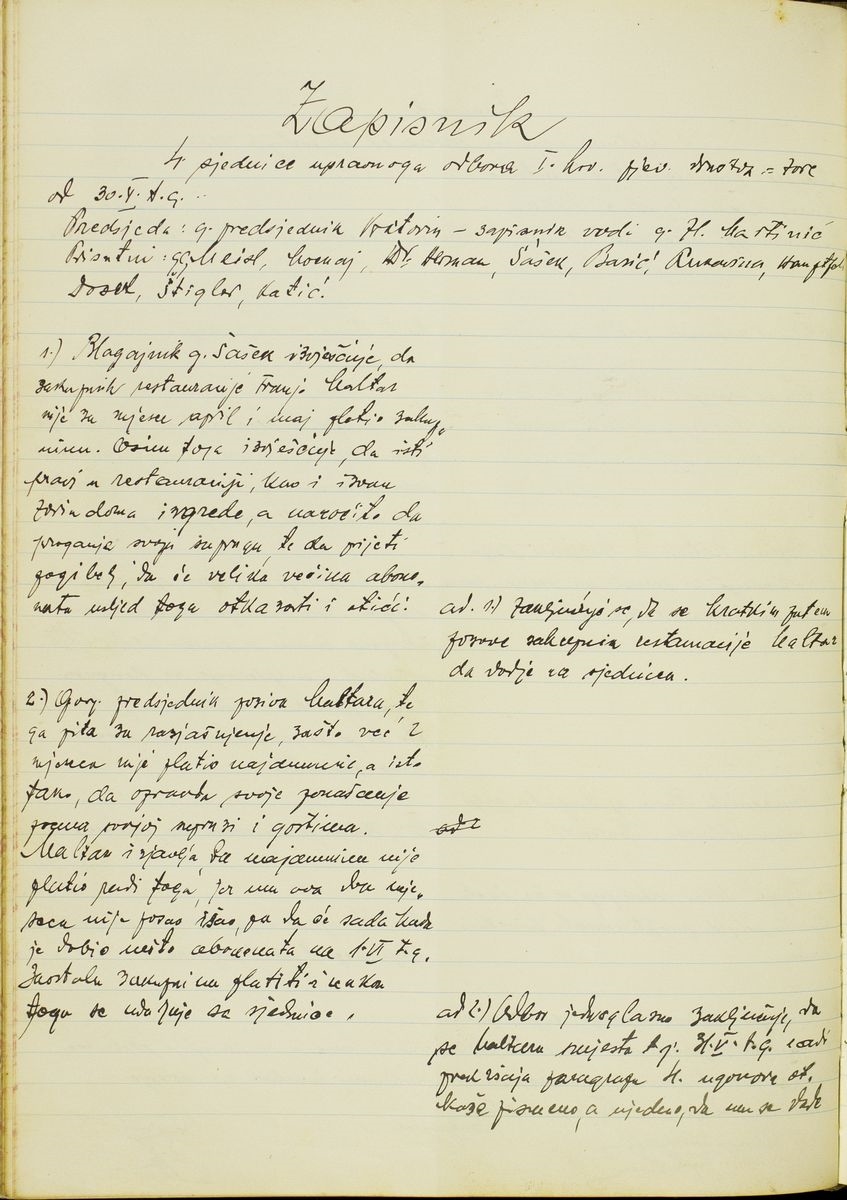 Zapisnik
4. sjednice upravnoga odbora I. hrv. pjev. društva = Zore
od 30.V. t.g.
Predsjeda: g. predsjednik – zapisnik vodi g. H. Martinić
Prisutni: gg. Meisl, Dr. Herman, Šašek, Barić, Rukavina,
Dosek, Štigler, Katić.
1.) Blagajnik g. Šašek izvješćuje, da
zakupnik restauracije Franjo Maltar
nije za mjesec april i maj platio zakup„
ninu. Osim toga izvješćuje, da isti
pravi u restauraciji, kao i izvan
Zorin doma izgrede, a naročito da
proganja svoju suprugu, te da prijeti
pogibelj, da će velika većina abone„
nata usljed toga otkazati i otići.
ad. 1) Zaključuje se, da se kratkim putem
pozove zakupnik restauracije Maltar
da dodje na sjednicu.
2.) Gosp. predsjednik poziva Maltara, te
ga pita za razjašnjenje, zašto već 2
mjeseca nije platio najamnine, a isto
tako, da opravda svoje ponašanje
prema svojoj supruzi i gostima.
Maltar izjavlja, da najamninu nije
platio radi toga, jer mu ova dva mje„
seca nije posao išao, pa da će sada kada
je dobio nešto abonenata na 1.VI t.g.
zaostalu zakupninu platiti i nakon
toga se udaljuje sa sjednice.
ad 2.) Odbor jednoglasno zaključuje, da
se Maltaru smjesta t.j. 31.V. t.g. radi
prekršaja paragrafa 4. ugovora ot„
kaže pismeno, a ujedno, da mu se dade